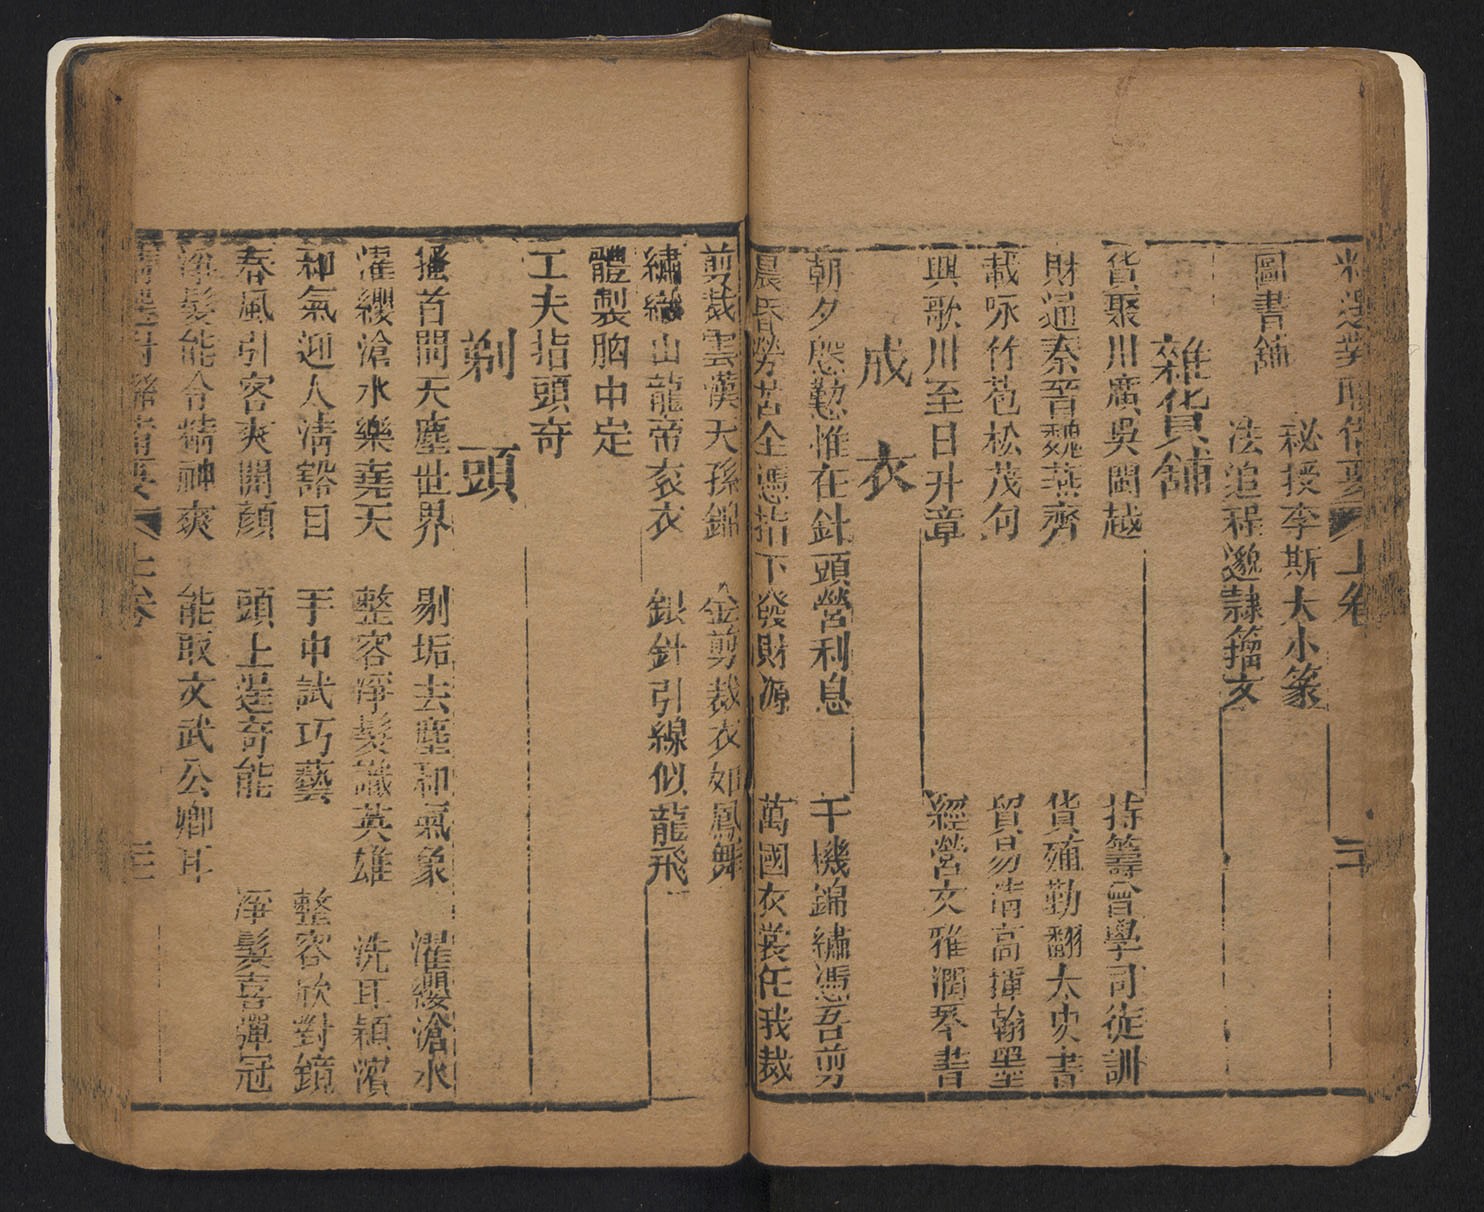 精選對聯備要 上卷 二十
圖書舖
秘授李斯大小篆
法追程邈隸籀文
雜貨舖
貨聚川廣吳閩越 持籌會學司徒訓
財通秦晉魏燕齊 貨殖勤翻太史書
載咏竹苞松茂句 貿易清高揮翰墨
興歌川至日升章 經營文雅潤琴書
成衣
朝夕慇懃惟在針頭營利息 千機錦繡憑吾剪
晨昏勞苦全憑指下發財源 萬國衣裳任我裁
剪裁雲漢天孫錦 金剪裁衣如鳳舞
繡 山龍帝衮衣 銀針引線似龍飛
體製胸中定
工夫指頭奇
剃頭
搔首問天塵世界 剔垢去塵和氣象 濯纓滄水
濯纓滄水樂堯天 整容淨髮識英雄 洗耳潁濱
和氣迎人清谿目 手中試巧藝 整容欣對鏡
春風引客爽開顏 頭上逞奇能 淨髮喜彈冠
淨髮能令精神爽 能取文武公卿耳
精選對聯備要 上卷